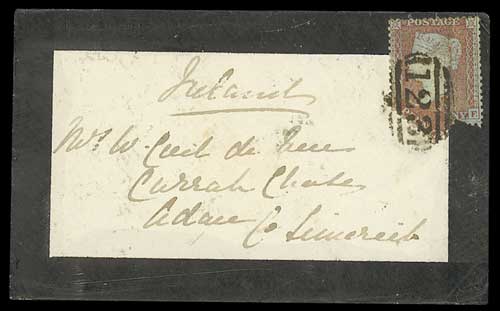 POSTAGE
Ireland
Mrs W. Cecil de Vere
Currah Chase
Adare Co Limerick